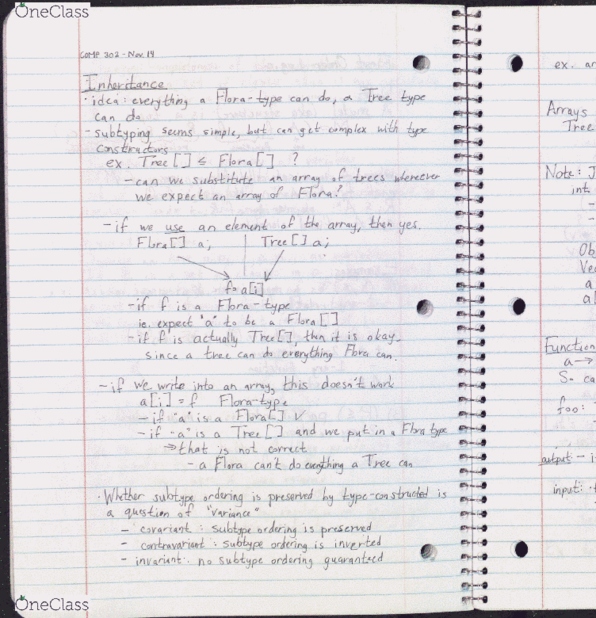 OneClass
COMP 302 - Nov. 14
Inheritance
· idea: everything a Flora-type can do, a Tree type
can do
- subtyping seems simple, but can get complex with type
constructors
ex. Tree[] ≤ Flora[] ?
- can we substitute an array of trees wherever
we expect an array of Flora?
- if we use an element of the array, then yes.
Flora[] a; Tree[] a;
f = a[i]
- if f is a Flora-type
ie. expect "a" to be a Flora[]
- if f is actually Tree[], than it is okay
since a tree can do everything Flora can.
- if we write into an array, this doesn't work
a[i] = f Flora-type
- if "a" is a Flora[] ✓
- if "a" is a Tree[] and we put in a Flora type
⇒ that is not correct
- a Flora can't do everything a Tree can
· Whether subtype ordering is preserved by type-constructed is
a question of "variance"
- covariant : subtype ordering is preserved
- contravariant : subtype ordering is inverted
- invariant : no subtype ordering guaranteed
OneClass
ex. ar
Arrays
Tree
Note: J
int
Ob
Vec
a
a[
Function
a →
S. ca
foo:
output - i
input: